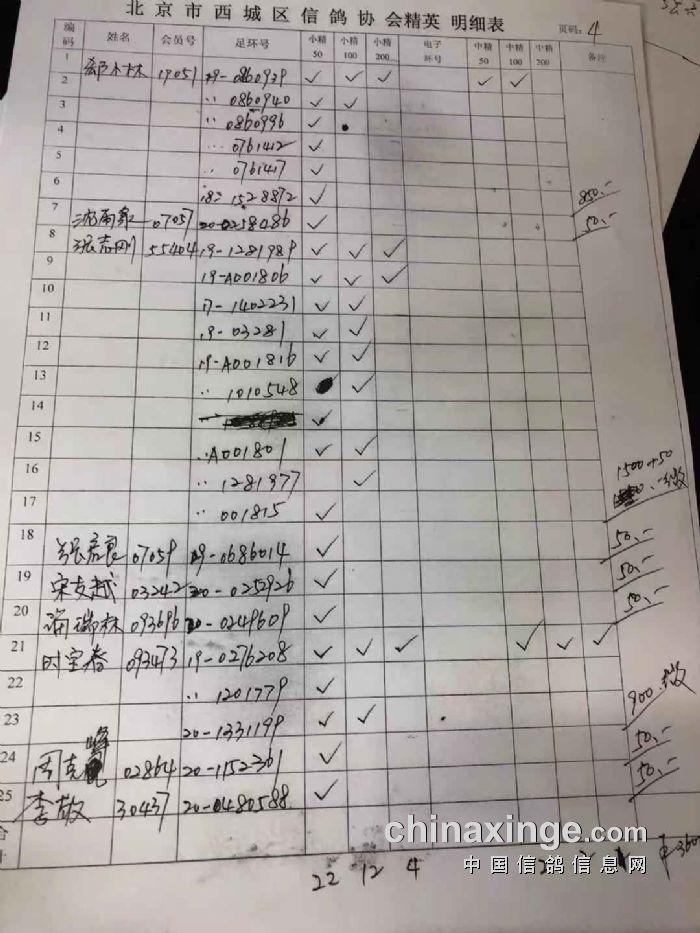 北京市西城区信鸽协会精英 明细表
页码: 4
编码 姓名 会员号 足环号 小精50 小精100 小精200 电子环号 中精50 中精100 中精200 备注
1 19051 19-0860939 ✓ ✓ ✓ ✓ ✓
2 〃 0860940 ✓ ✓
3 〃 0860996 ✓
4 〃 0761412 ✓
5 〃 0761417 ✓
6 18-1528872 ✓ 850.-
7 07057 20-0258486 ✓ 50.-
8 张志刚 55404 19-1281989 ✓ ✓ ✓
9 19-A001806 ✓ ✓ ✓
10 17-1402231 ✓ ✓
11 19-03281 ✓ ✓
12 19-A001816 ✓ ✓
13 〃 1010548 ✓
14 ✓
15 〃 A001801 ✓ ✓
16 〃 1281977 ✓
17 〃 001815 ✓ 1500+50
18 07059 19-0686014 ✓ 50.-
19 宋支越 03242 20-0252926 ✓ 50.-
20 093696 20-0249609 ✓ 50.-
21 时宝春 093473 19-0276208 ✓ ✓ ✓ ✓ ✓ ✓
22 〃 1201779 ✓
23 20-1331199 ✓ ✓ 900.
24 周克峰 02864 20-1152361 ✓ 50.-
25 李敬 30437 20-0480588 ✓ 50.-
合计 22 12 4 2
chinaxinge.com
中国信鸽信息网